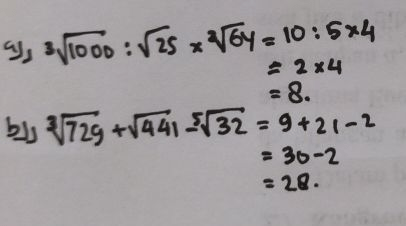 a)) ³√1000 : √25 × ³√64 = 10 : 5 × 4
= 2 × 4
= 8.
b)) ³√729 + √441 - ⁵√32 = 9 + 21 - 2
= 30 - 2
= 28.